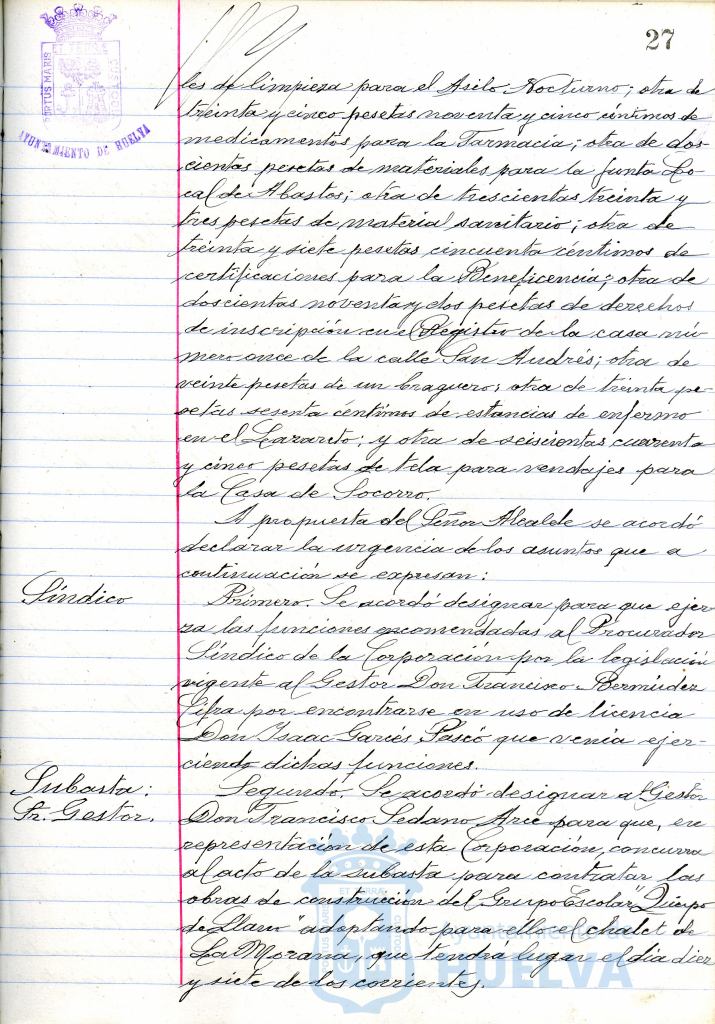 27
PORTUS MARIS
ET TERRÆ
CUSTODIA
AYUNTAMIENTO DE HUELVA
les de limpieza para el Asilo Nocturno; otra de
treinta y cinco pesetas noventa y cinco céntimos de
medicamentos para la Farmacia; otra de dos-
cientas pesetas de materiales para la Junta Lo-
cal de Abastos; otra de trescientas treinta y
tres pesetas de material sanitario; otra de
treinta y siete pesetas cincuenta céntimos de
certificaciones para la Beneficencia; otra de
doscientas noventa y dos pesetas de derechos
de inscripción en el Registro de la casa nú-
mero once de la calle San Andrés; otra de
veinte pesetas de un braguero; otra de treinta pe-
setas sesenta céntimos de estancias de enfermo
en el Lazareto; y otra de seiscientas cuarenta
y cinco pesetas de tela para vendajes para
la Casa de Socorro.
A propuesta del Señor Alcalde se acordó
declarar la urgencia de los asuntos que a
continuación se expresan:
Síndico
Primero. Se acordó designar para que ejer-
za las funciones encomendadas al Procurador
Síndico de la Corporación por la legislación
vigente al Gestor Don Francisco Bermúdez
Cifra por encontrarse en uso de licencia
Don Isaac Garcés Pascó que venía ejer-
ciendo dichas funciones.
Subasta:
Sr. Gestor.
Segundo. Se acordó designar al Gestor
Don Francisco Sedano Arce para que, en
representación de esta Corporación, concurra
al acto de la subasta para contratar las
obras de construcción del Grupo Escolar "Queipo
de Llano" adoptando para ello el chalet de
La Morana, que tendrá lugar el día diez
y siete de los corrientes.
Ayuntamiento de
HUELVA